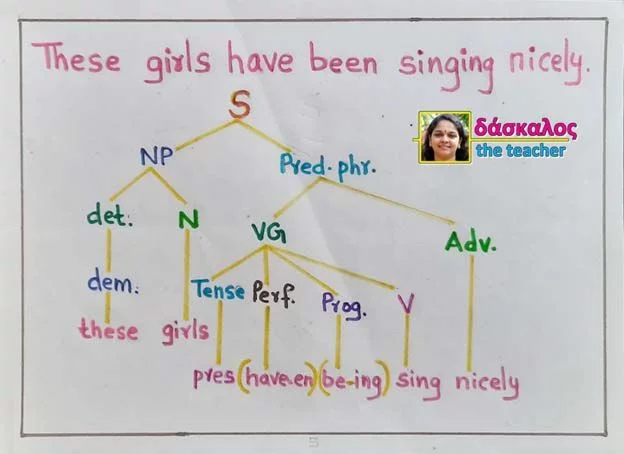 These girls have been singing nicely.
S
δάσκαλος
the teacher
NP Pred. phr.
det. N VG Adv.
dem. Tense Perf. Prog. V
these girls
pres (have-en) (be-ing) sing nicely